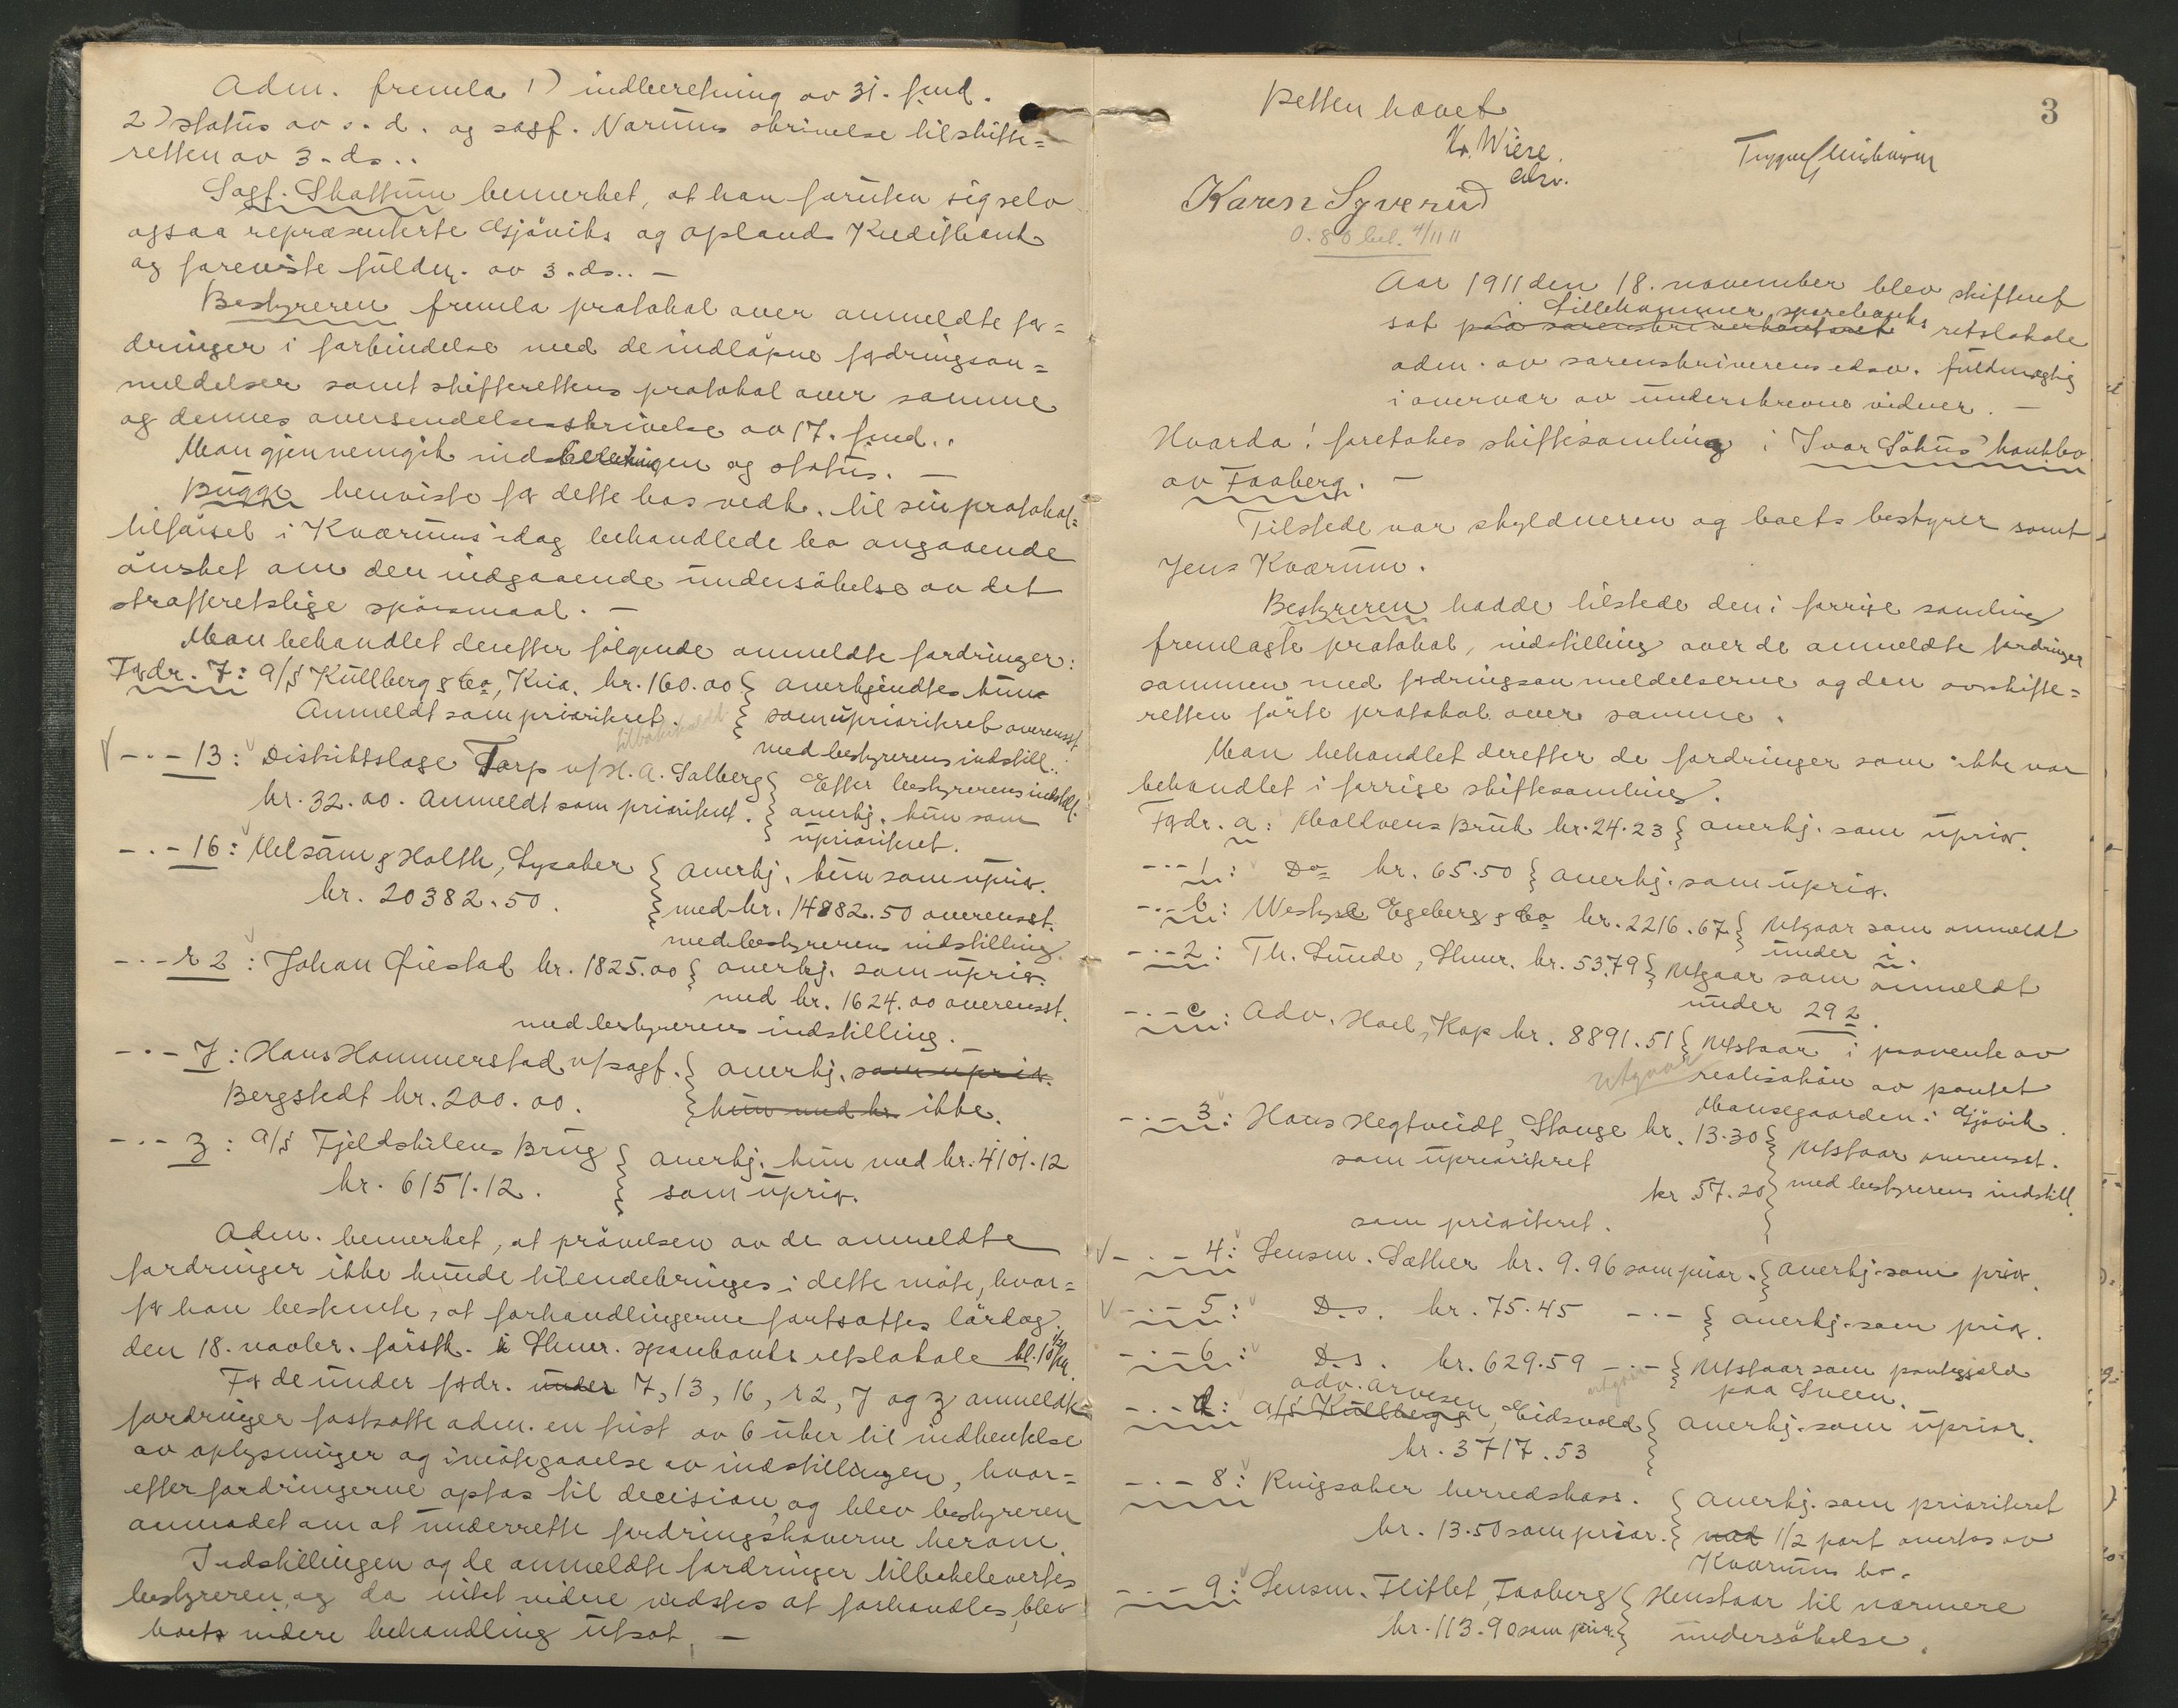 Adm. fremla 1) indberetning av 31. f.md.
2) status av s.d. og sagf. Narums skrivelse til skifte=
retten av 3. ds..
Sagf. Skattum bemerket, at han foruten sig selv
ogsaa repræsenterte Gjøviks og Oplands Kreditbank
og foreviste fuldm. av 3. ds.. —
Bestyreren fremla protokol over anmeldte for=
dringer i forbindelse med de indløpne fordringsan=
meldelser samt skifterettens protokol over samme
og dennes oversendelsesskrivelse av 17. f.md..
Man gjennemgik indberetningen og status. —
Bugge henviste for dette bos vedk. til sin protokol=
tilførsel i Kværums idag behandlede bo angaaende
ønsket om den indgaaende undersøkelse av det
strafferetslige spørsmaal. —
Man behandlet derefter følgende anmeldte fordringer:
Fordr. 7: A/S Kullberg & Co, Kria. kr. 160.00 } anerkjendtes kun
Anmeldt som prioriteret. } som uprioritert overensst.
med bestyrerens indstill..
—·— 13: Distriktslæge Torp v/H. A. Solberg } Efter bestyrerens indstill.
kr. 32.00. Anmeldt som prioritert. } anerkj. kun som
uprioriteret.
—·— 16: Melsom & Holth, Lysaker } anerkj. kun som uprior.
kr. 20382.50. } med kr. 14882.50 overensst.
med bestyrerens indstilling.
—·— r 2: Johan Øiestad kr. 1825.00 } anerkj. som uprior.
med kr. 1624.00 overensst.
med bestyrerens indstilling.
—·— J: Hans Hammerstad v/sagf. } anerkj. som uprior.
Bergstedt kr. 200.00. } kun med kr. ikke.
—·— z: A/S Fjeldskilens Brug } anerkj. kun med kr. 4101.12
kr. 6151.12. } som uprior.
Adm. bemerket, at prøvelsen av de anmeldte
fordringer ikke kunde tilendebringes i dette møte, hvor=
for han bestemte, at forhandlingerne fortsattes lørdag
den 18. novbr. førstk. i Lhmr. sparebanks retslokale kl. 10 1/2 fm.
For de under fordr. under 7, 13, 16, r 2, J og z anmeldte
fordringer fastsatte adm. en frist av 6 uker til indhentelse
av oplysninger og imøtegaaelse av indstillingen, hvor=
efter fordringerne optas til decision, og blev bestyreren
anmodet om at underrette fordringshaverne herom.
Indstillingen og de anmeldte fordringer tilbakeleverte
bestyreren, og da intet videre indstes at forhandles, blev
boets videre behandling utsat. —
3
Retten hævet
Kr. Wiese.
edsv.
Karen Syverud
0.80 bet. 4/11 11
Aar 1911 den 18. november blev skifteret
Lillehammer sparebanks
sat paa sorenskriverkontoret retslokale
adm. av sorenskriverens edsv. fuldmægtig
i overvær av underskrevne vidner. —
Hvorda! foretokes skiftesamling i Ivar Søhus' konkbo
av Faaberg. —
Tilstede var skyldneren og boets bestyrer samt
Jens Kværum.
Bestyreren hadde tilstede den i forrige samling
fremlagte protokol, indstilling over de anmeldte fordringer
sammen med fordringsanmeldelserne og den av skifte=
retten førte protokol over samme.
Man behandlet derefter de fordringer som ikke var
behandlet i forrige skiftesamling.
Fordr. a: Moelvens Bruk kr. 24.23 } anerkj. som uprior.
—·— 1: Do kr. 65.50 } anerkj. som uprior.
—·— b: Westye Egeberg & Co kr. 2216.67 } Utgaar som anmeldt
under i.
—·— 2: Th. Lunde, Lhmr. kr. 53.79 } Utgaar som anmeldt
under 29 2.
—·— c: Adv. Hoel, Kap kr. 8891.51 } Utstaar i paavente av
utgaar realisation av pantet
Mansegaarden i Gjøvik.
—·— 3: Hans Hegtveidt, Stange kr. 13.30 } Utstaar overensst.
som uprioriteret
kr. 57.20 } med bestyrerens indstill.
som prioriteret.
—·— 4: Lensm. Sæther kr. 9.96 som prior. } anerkj. som prior.
—·— 5: D.s. kr. 75.45 —·— } anerkj. som prior.
—·— 6: D.s. kr. 629.59 —·— } Utstaar som pantegjeld
paa Sveen.
adv. Arvesen
—·— d: A/S Kullberg &, Eidsvold } anerkj. som uprior.
kr. 3717.53
—·— 8: Ringsaker herredskass. } anerkj. som prioriteret
kr. 13.50 som prior. } med 1/2 part overtas av
Kværums bo.
—·— 9: Lensm. Fliflet, Faaberg } Henstaar til nærmere
kr. 113.90 som prior. } undersøkelse.